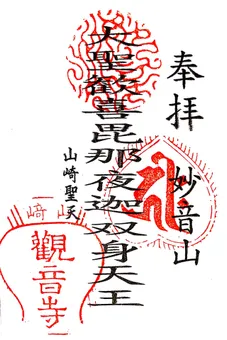 奉拝
妙音山
大聖歓喜毘那夜迦双身天王
山崎聖天
山﨑
觀音寺